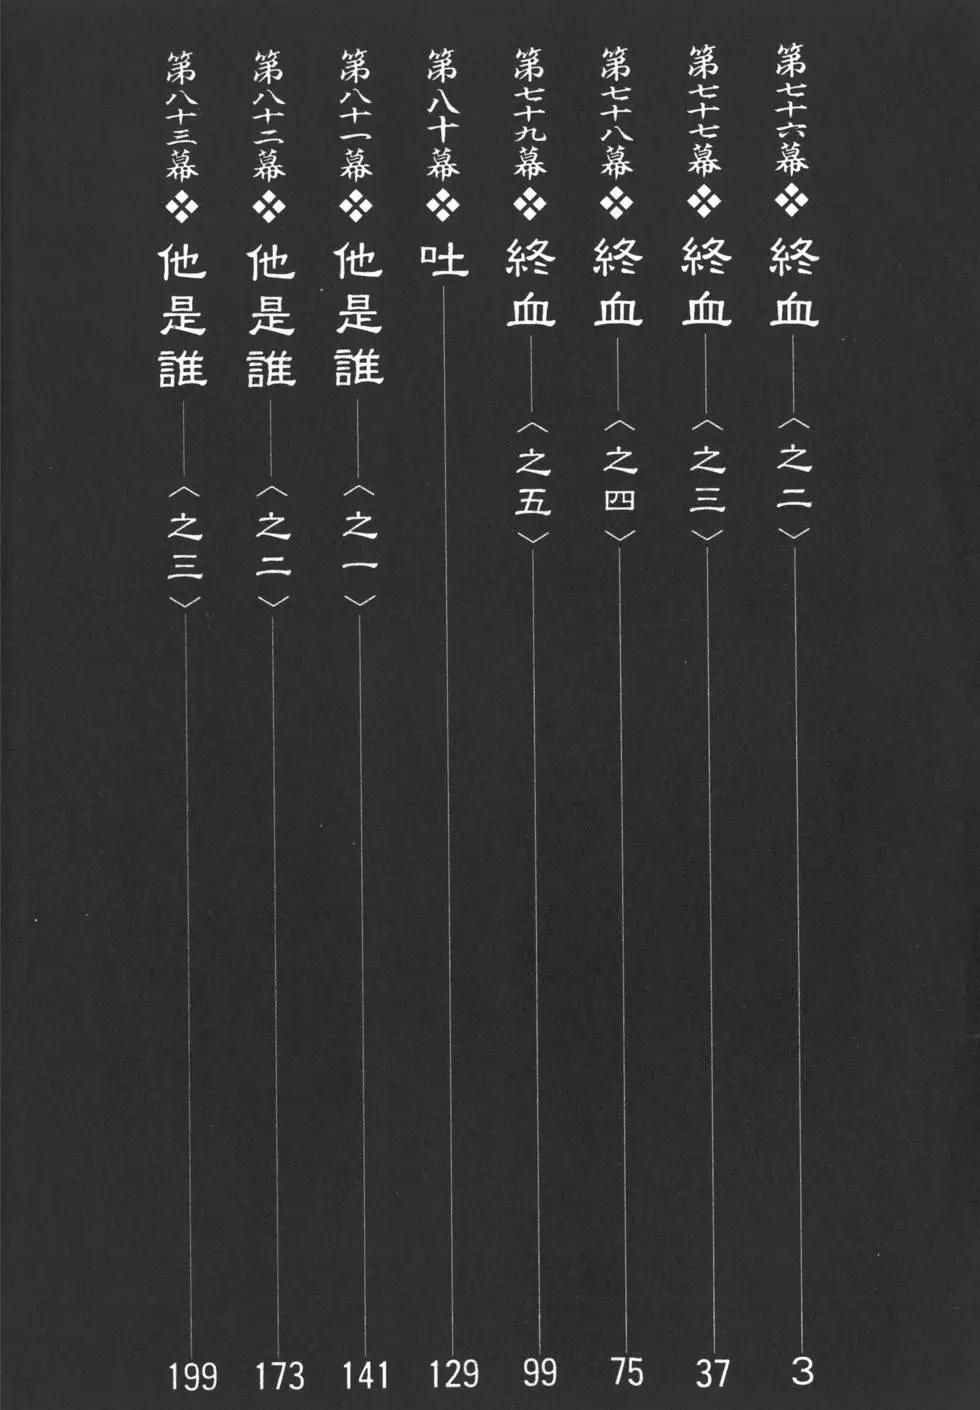 第七十六幕❖終血〈之二〉3
第七十七幕❖終血〈之三〉37
第七十八幕❖終血〈之四〉75
第七十九幕❖終血〈之五〉99
第八十幕❖吐129
第八十一幕❖他是誰〈之一〉141
第八十二幕❖他是誰〈之二〉173
第八十三幕❖他是誰〈之三〉199